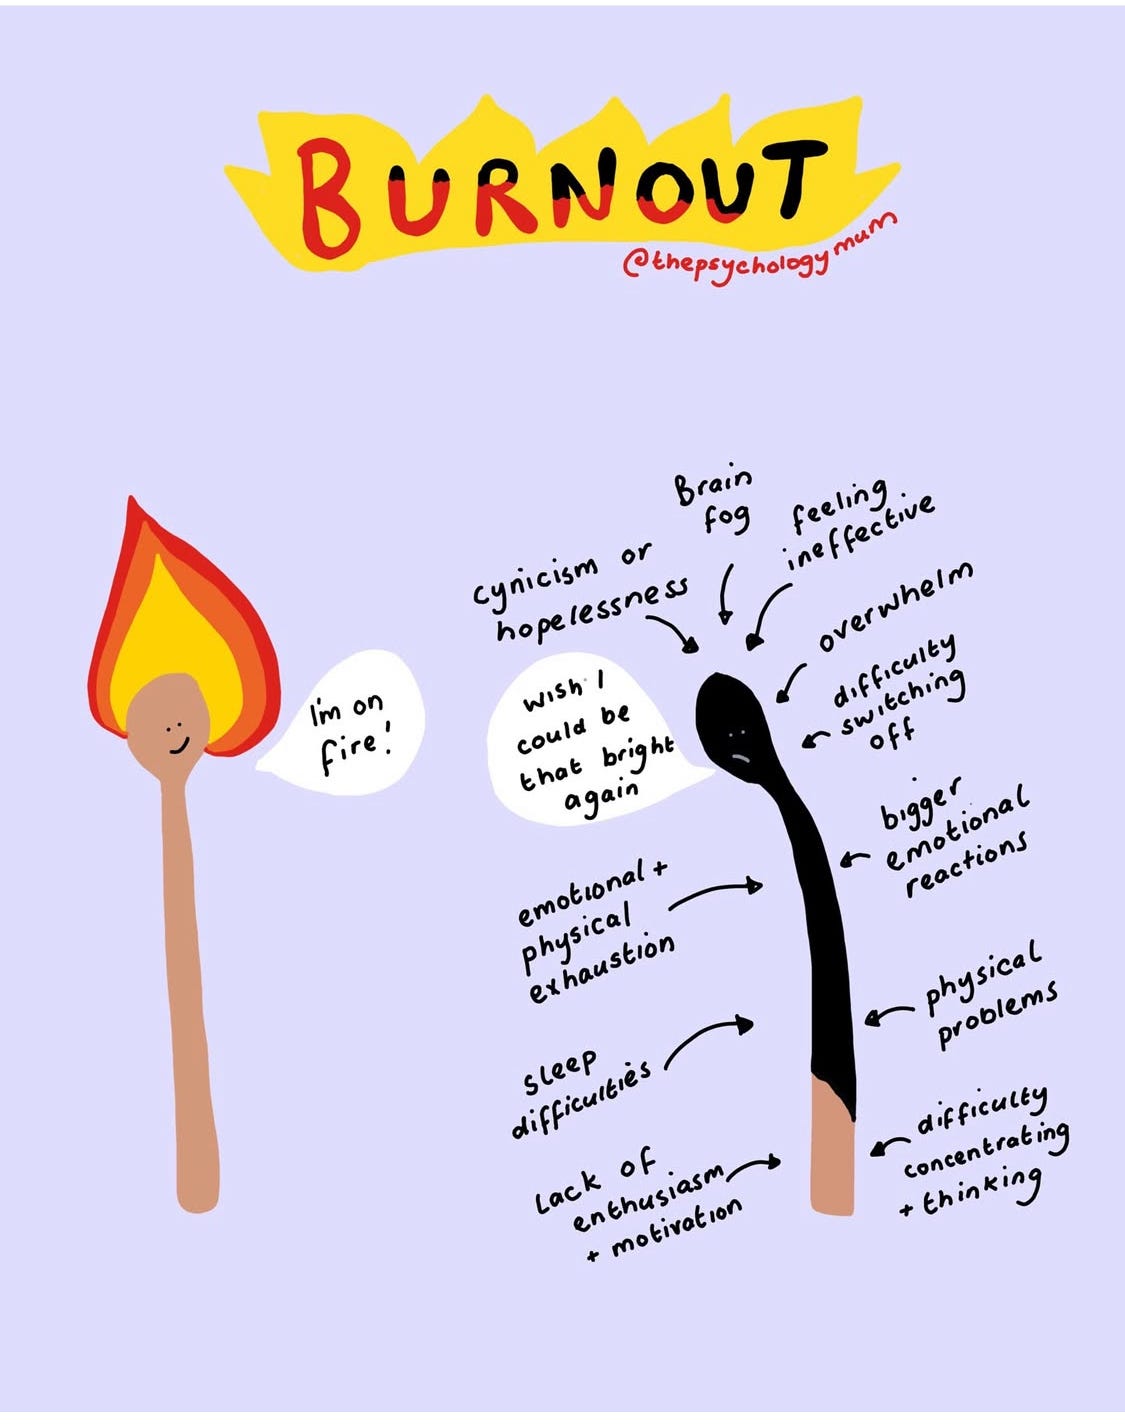 BURNOUT
@thepsychologymum
I'm on
fire!
wish I
could be
that bright
again
cynicism or
hopelessness
Brain
fog
feeling
ineffective
overwhelm
difficulty
switching
off
bigger
emotional
reactions
emotional +
physical
exhaustion
physical
problems
sleep
difficulties
difficulty
concentrating
+ thinking
Lack of
enthusiasm
+ motivation